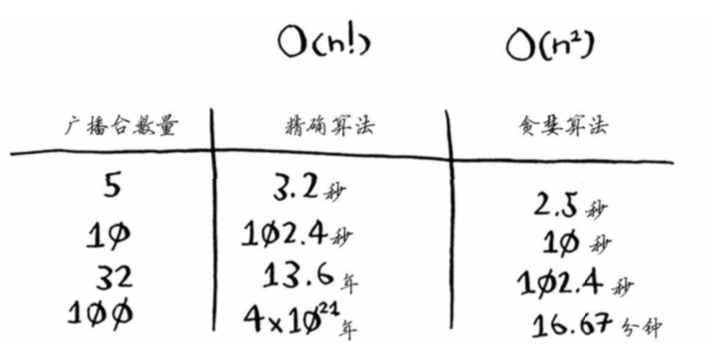 O(n!) O(n²)
广播台数量 精确算法 贪婪算法
5 3.2秒 2.5秒
10 102.4秒 10秒
32 13.6年 102.4秒
100 4x10²¹年 16.67分钟